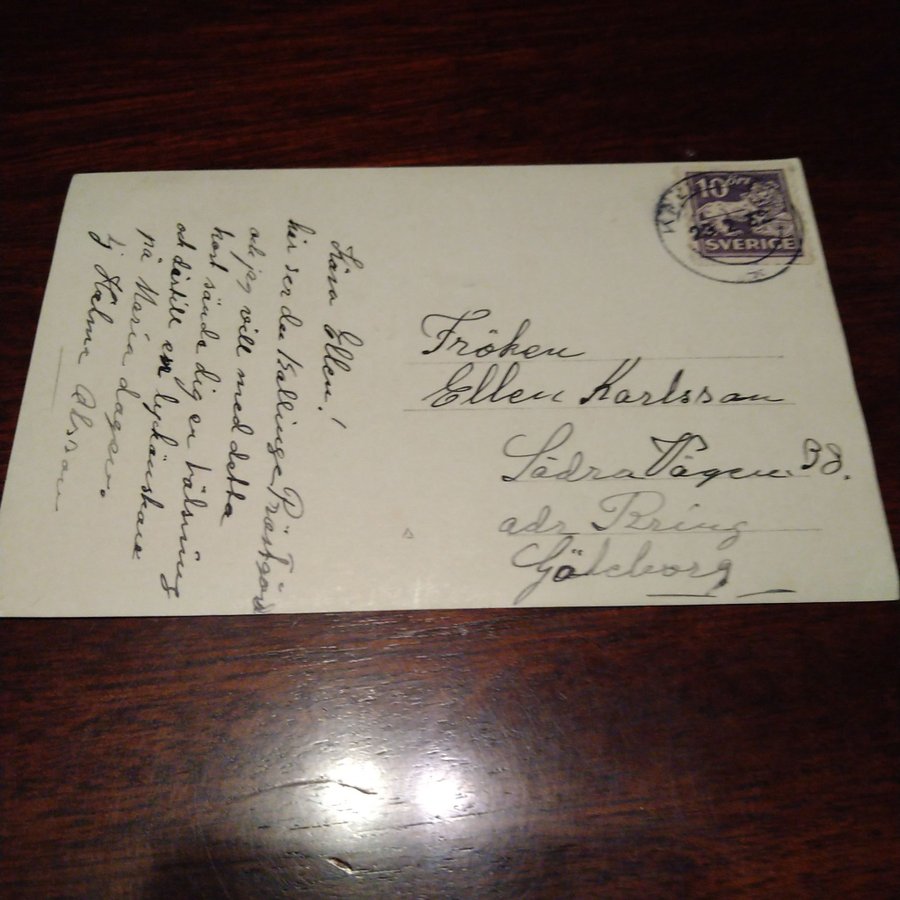 Kära Ellen!
här ser du Kallinge Prästgård
och jag vill med detta
kort sända dig en hälsning
och därtill en lyckönskan
på Maria dagen.
Hälma Olsson
10 öre
SVERIGE
Fröken
Ellen Karlsson
Södra Vägen 38.
adr Bring
Göteborg